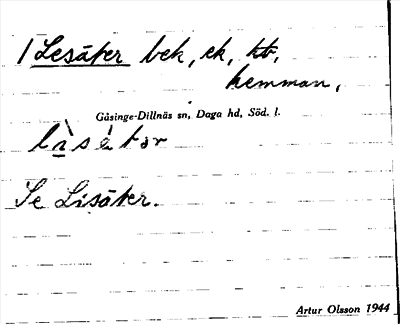 /Lesäter bek, ek, kb,
hemman,
Gåsinge-Dillnäs sn, Daga hd, Söd. l.
Se Lisäter.
Artur Olsson 1944